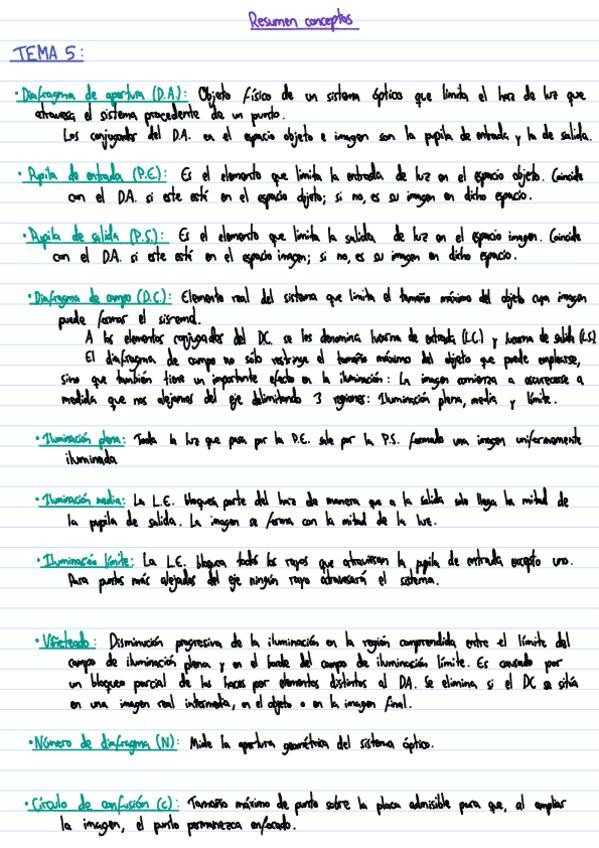 Resumen conceptos
TEMA 5:
· Diafragma de apertura (D.A.): Objeto físico de un sistema óptico que limita el haz de luz que
atraviesa el sistema procedente de un punto.
Los conjugados del D.A. en el espacio objeto e imagen son la pupila de entrada y la de salida.
· Pupila de entrada (P.E.): Es el elemento que limita la entrada de luz en el espacio objeto. Coincide
con el D.A. si este está en el espacio objeto; si no, es su imagen en dicho espacio.
· Pupila de salida (P.S.): Es el elemento que limita la salida de luz en el espacio imagen. Coincide
con el D.A. si este está en el espacio imagen; si no, es su imagen en dicho espacio.
· Diafragma de campo (D.C.): Elemento real del sistema que limita el tamaño máximo del objeto cuya imagen
puede formar el sistema.
A los elementos conjugados del DC. se les denomina lucarna de entrada (LC.) y lucarna de salida (LS)
El diafragma de campo no sólo restringe el tamaño máximo del objeto que puede emplearse,
sino que también tiene un importante efecto en la iluminación: La imagen comienza a oscurecerse a
medida que nos alejamos del eje delimitando 3 regiones: Iluminación plena, media y límite.
· Iluminación plena: Toda la luz que pasa por la P.E. sale por la P.S. formado una imagen uniformemente
iluminada
· Iluminación media: La L.E. bloquea parte del haz de manera que a la salida solo llega la mitad de
la pupila de salida. La imagen se forma con la mitad de la luz.
· Iluminación límite: La L.E. bloquea todos los rayos que atraviesan la pupila de entrada excepto uno.
Para puntos más alejados del eje ningún rayo atravesará el sistema.
· Viñeteado: Disminución progresiva de la iluminación en la región comprendida entre el límite del
campo de iluminación plena y en el borde del campo de iluminación límite. Es causado por
un bloqueo parcial de los haces por elementos distintos al DA. Se elimina si el DC se sitúa
en una imagen real intermedia, en el objeto o en la imagen final.
· Número de diafragma (N): Mide la apertura geométrica del sistema óptico.
· Círculo de confusión (c): Tamaño máximo de punto sobre la placa admisible para que, al ampliar
la imagen, el punto permanezca enfocado.